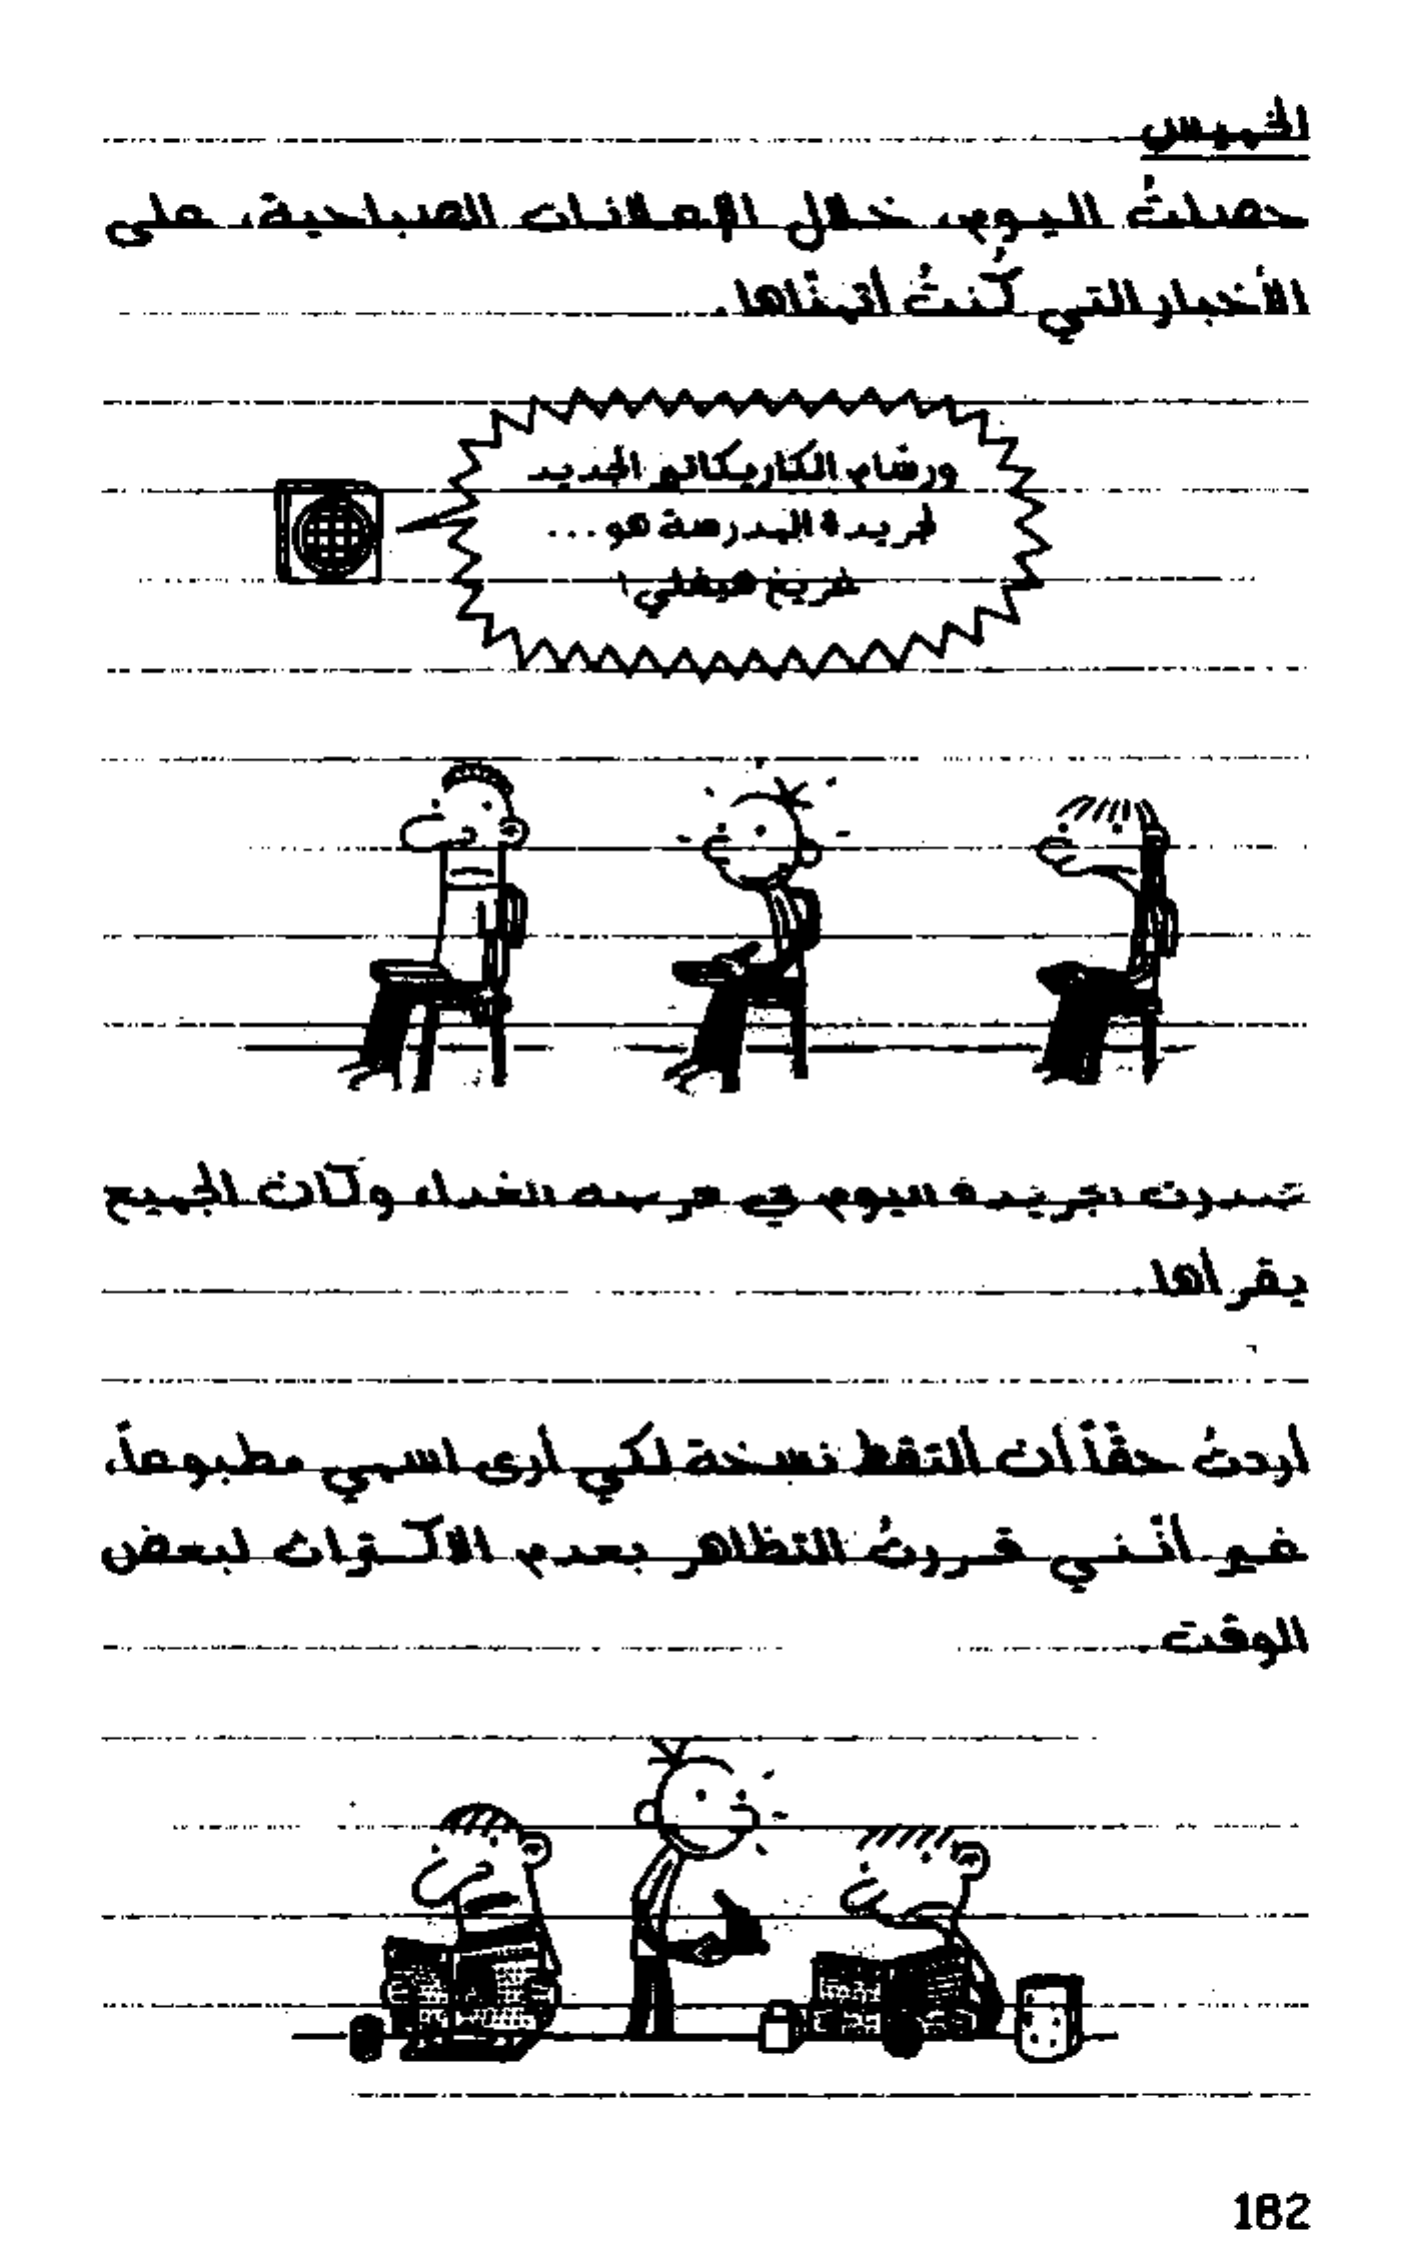 الخميس
حصلتُ اليوم، خلال الإعلانات الصباحية، على
الأخبار التي كُنتُ أتمنّاها.
ورسّام الكاريكاتير الجديد
لجريدة المدرسة هو...
غريغ هيفلي!
صدرت الجريدة اليوم في فرصة الغداء وكان الجميع
يقرأها.
أردتُ حقّاً أن ألتقط نسخة لكي أرى اسمي مطبوعاً،
غير أنّني قررتُ التظاهر بعدم الاكتراث لبعض
الوقت.
182